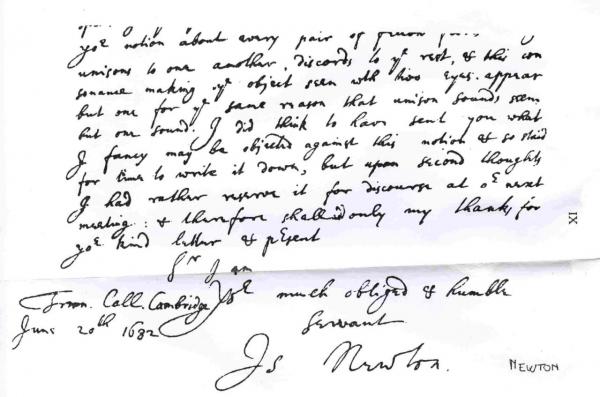 yor notion about every pair of
unisons to one another, discords to ye rest, & this con
sonance making ye object seen with two eyes appear
but one for ye same reason that unison sounds seem
but one sound. I did think to have sent you what
I fancy may be objected against this notion & so staid
for time to write it down, but upon second thoughts
I had rather reserve it for discourse at or next
meeting: & therefore shall add only my thanks for
yor kind letter & pRsent
Sr I am
Yor much obliged & humble
Trin. Coll. Cambridge
June 20th 1682
Servant
Is Newton.
NEWTON
IX